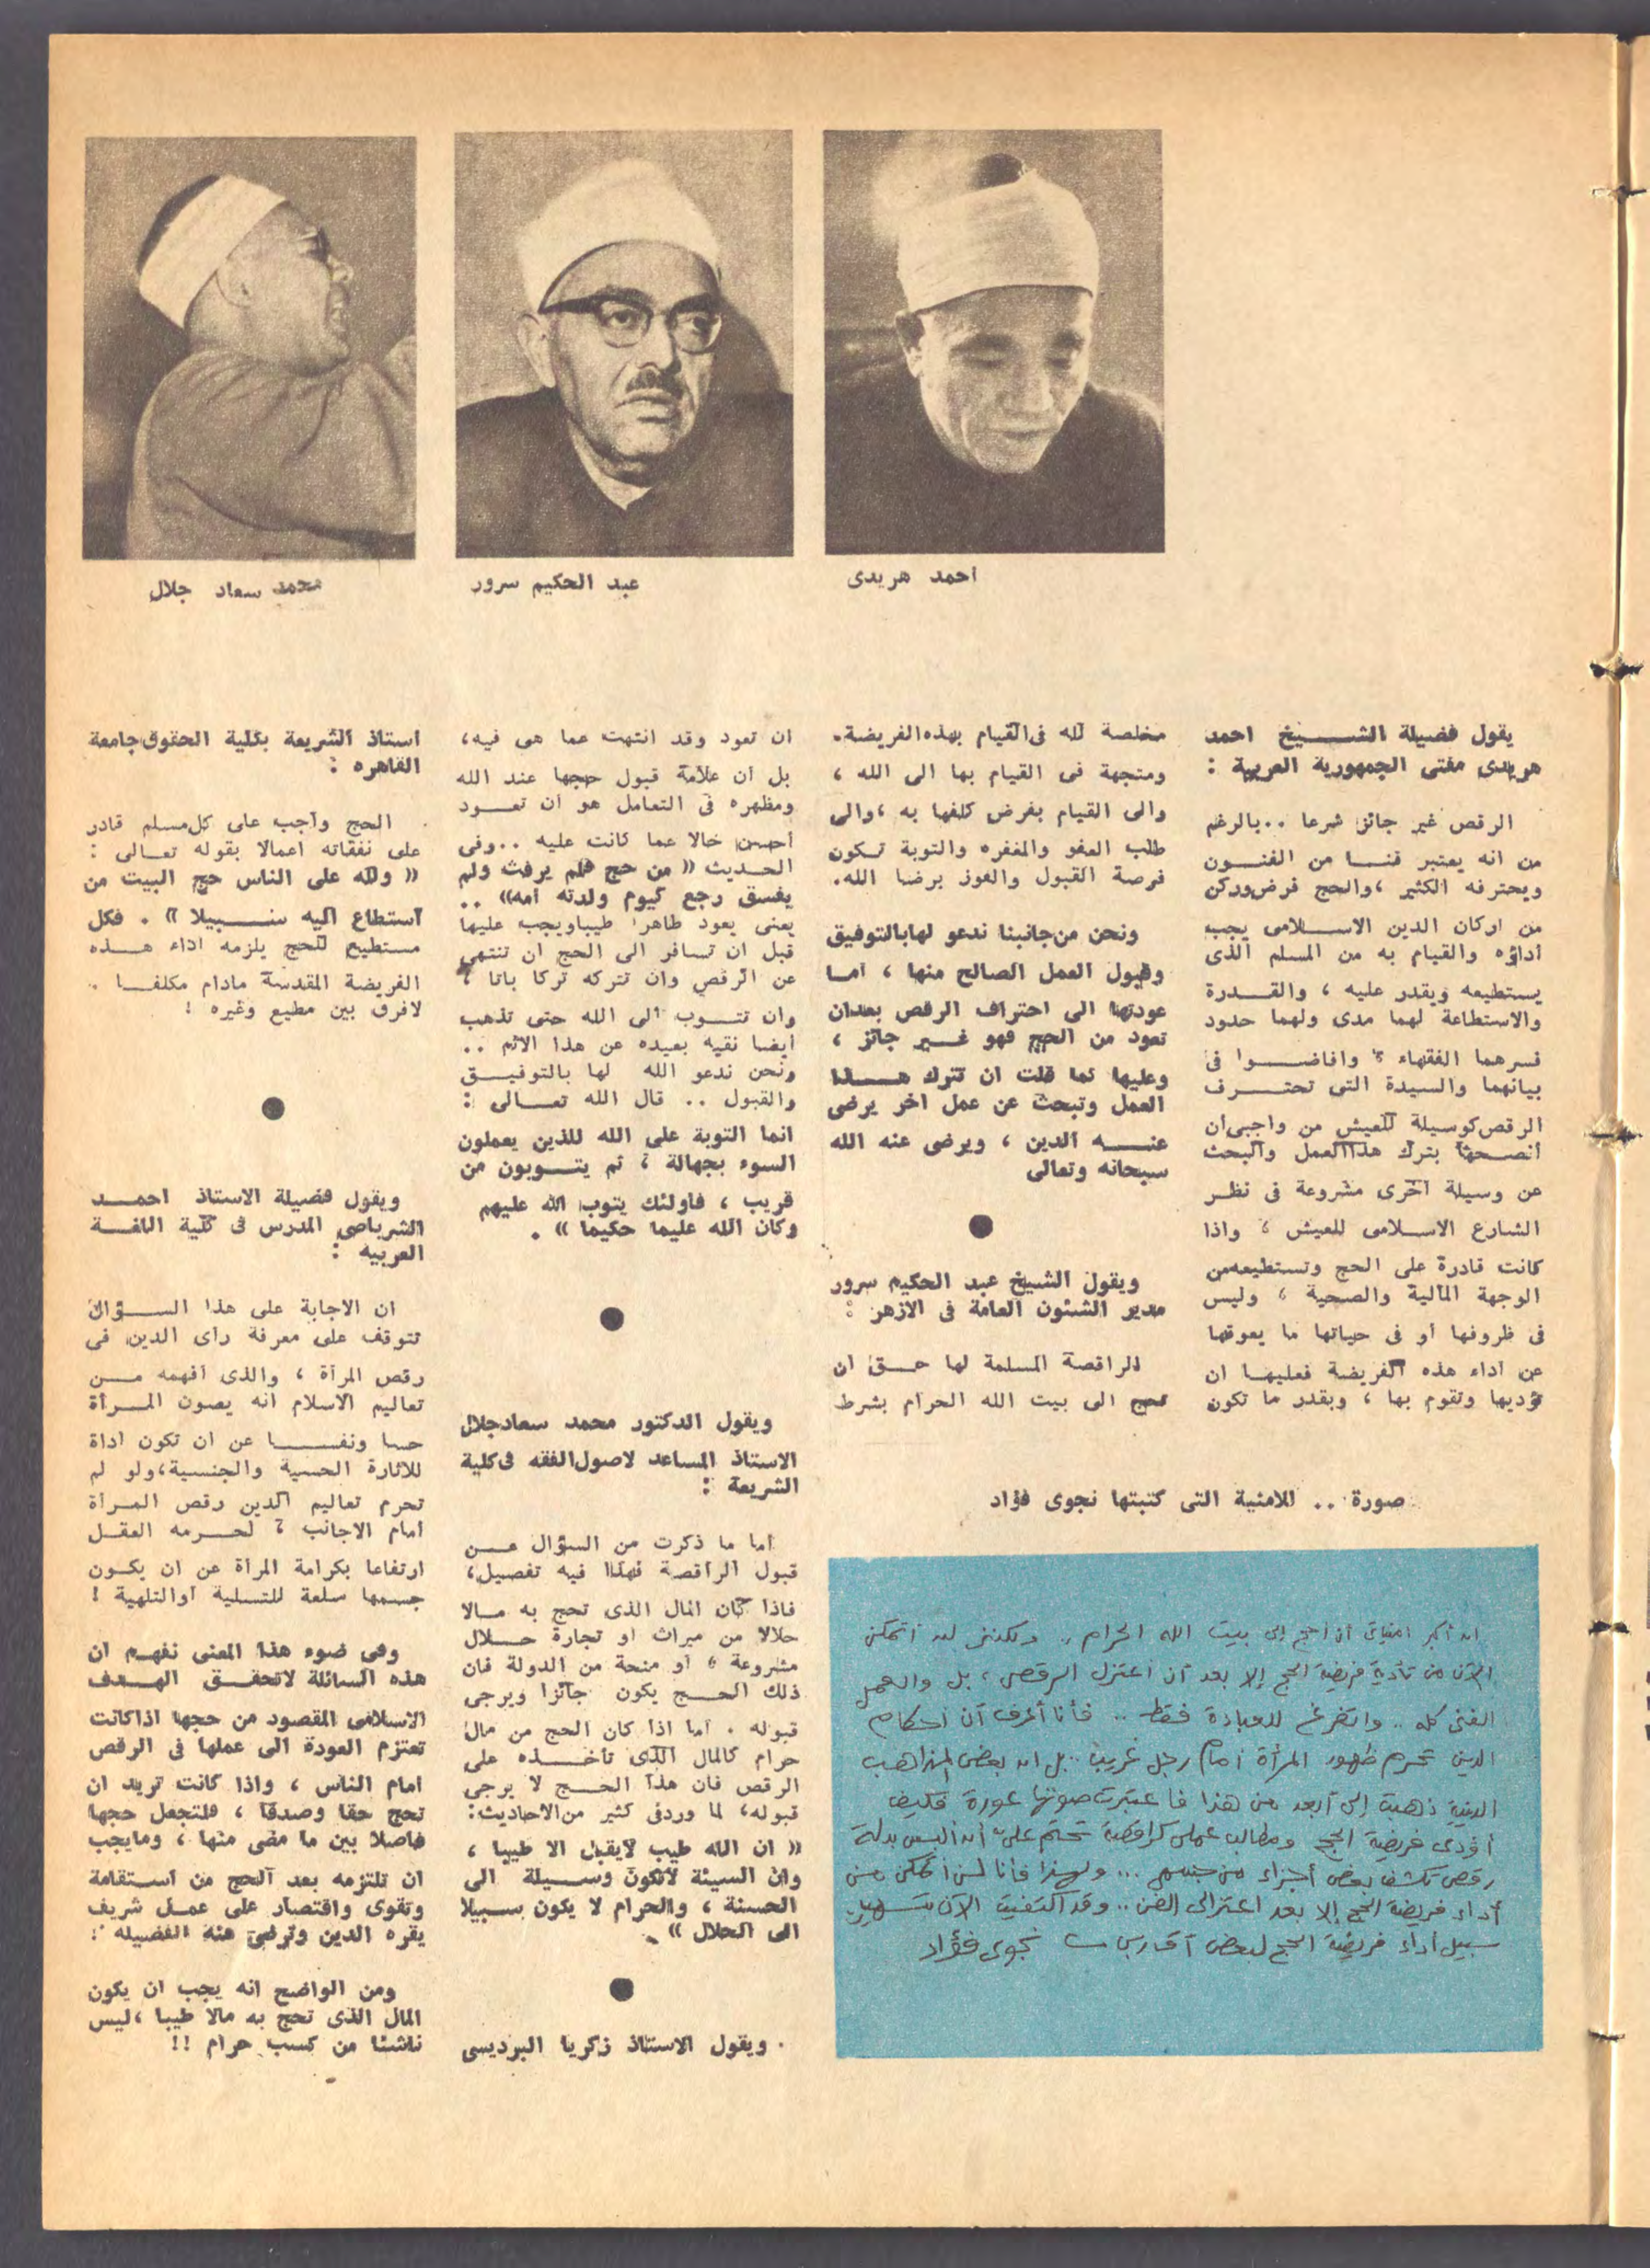 احمد هريدى
عبد الحكيم سرور
محمد سعاد جلال
يقول فضيلة الشـــيخ احمد
هريدى مفتى الجمهورية العربية :
الرقص غير جائز شرعا .. بالرغم
من انه يعتبر فنـــا من الفنــون
ويحترفه الكثير ، والحج فرض وركن
من اركان الدين الاســـلامى يجب
أداؤه والقيام به من المسلم الذى
يستطيعه ويقدر عليه ، والقـــدرة
والاستطاعة لهما مدى ولهما حدود
فسرهما الفقهاء ، وافاضـــوا فى
بيانهما والسيدة التى تحتــرف
الرقص كوسيلة للعيش من واجبى ان
أنصــحها بترك هذا العمل والبحث
عن وسيلة اخرى مشروعة فى نظــر
الشارع الاســلامى للعيش ، واذا
كانت قادرة على الحج وتستطيعه من
الوجهة المالية والصحية ، وليس
فى ظروفها أو فى حياتها ما يعوقها
عن أداء هذه الفريضة فعليهــا ان
تؤديها وتقوم بها ، وبقدر ما تكون
مخلصة لله فى القيام بهذه الفريضة.
ومتجهة فى القيام بها الى الله ،
والى القيام بفرض كلفها به ، والى
طلب العفو والمغفره والتوبة تــكون
فرصة القبول والفوز برضا الله.
ونحن من جانبنا ندعو لها بالتوفيق
وقبول العمل الصالح منها ، امــا
عودتها الى احتراف الرقص بعد ان
تعود من الحج فهو غـــير جائز ،
وعليها كما قلت ان تترك هـــذا
العمل وتبحث عن عمل اخر يرضى
عنـــه الدين ، ويرضى عنه الله
سبحانه وتعالى
ويقول الشيخ عبد الحكيم سرور
مدير الشئون العامة فى الازهر :
الراقصة المسلمة لها حــق ان
تحج الى بيت الله الحرام بشرط
ان تعود وقد انتهت عما هى فيه،
بل ان علامة قبول حجها عند الله
ومظهره فى التعامل هو ان تعــود
أحسن حالا عما كانت عليه .. وفى
الحديث « من حج فلم يرفث ولم
يفسق رجع كيوم ولدته امه» ..
يعنى يعود طاهرا طيبا ويجب عليها
قبل ان تسافر الى الحج ان تنتهى
عن الرقص وان تتركه تركا باتا ،
وان تتــوب الى الله حتى تذهب
أيضا نقيه بعيده عن هذا الاثم ..
ونحن ندعو الله لها بالتوفيــق
والقبول .. قال الله تعــالى :
انما التوبة على الله للذين يعملون
السوء بجهالة ، ثم يتــوبون من
قريب ، فاولئك يتوب الله عليهم
وكان الله عليما حكيما » .
ويقول الدكتور محمد سعاد جلال
الاستاذ المساعد لاصول الفقه فى كلية
الشريعة :
أما ما ذكرت من السؤال عــن
قبول الراقصة فهذا فيه تفصيل،
فاذا كان المال الذى تحج به مــالا
حلالا من ميراث او تجارة حــلال
مشروعة ، أو منحة من الدولة فان
ذلك الحــج يكون جائزا ويرجى
قبوله . أما اذا كان الحج من مال
حرام كالمال الذى تأخـــذه على
الرقص فان هذا الحــج لا يرجى
قبوله، لما ورد فى كثير من الاحاديث:
« ان الله طيب لا يقبل الا طيبا ،
وان السيئة لا تكون وســيلة الى
الحسنة ، والحرام لا يكون سبيلا
الى الحلال » .
ويقول الاستاذ زكريا البرديسى
استاذ الشريعة بكلية الحقوق جامعة
القاهره :
الحج واجب على كل مسلم قادر
على نفقاته اعمالا بقوله تعــالى :
« ولله على الناس حج البيت من
استطاع اليه ســـبيلا » . فكل
مستطيع للحج يلزمه اداء هــذه
الفريضة المقدسة مادام مكلفــا .
لافرق بين مطيع وغيره !
ويقول فضيلة الاستاذ احمــد
الشرباصى المدرس فى كلية اللغــة
العربيه :
ان الاجابة على هذا الســؤال
تتوقف على معرفة رأى الدين فى
رقص المرأة ، والذى أفهمه مــن
تعاليم الاسلام انه يصون المــرأة
حسا ونفـــسا عن ان تكون اداة
للاثارة الحسية والجنسية، ولو لم
تحرم تعاليم الدين رقص المــرأة
أمام الاجانب ، لحــرمه العقــل
ارتفاعا بكرامة المرأة عن ان يكــون
جســمها سلعة للتسلية أو التلهية !
وفى ضوء هذا المعنى نفهــم ان
هذه السائلة لا تحقــق الهــدف
الاسلامى المقصود من حجها اذا كانت
تعتزم العودة الى عملها فى الرقص
أمام الناس ، واذا كانت تريد ان
تحج حقا وصدقا ، فلتجعل حجها
فاصلا بين ما مضى منها ، وما يجب
ان تلتزمه بعد الحج من اســتقامة
وتقوى واقتصار على عمــل شريف
يقره الدين وترضى عنه الفضيله :
ومن الواضح انه يجب ان يكون
المال الذى تحج به مالا طيبا ، ليس
ناشئا من كسب حرام !!
صورة .. للامنية التى كتبتها نجوى فؤاد
ان أكبر امنياتى أن أحج إلى بيت الله الحرام .. ولكننى لن أتمكن
الآن من تأدية فريضة الحج إلا بعد أن أعتزل الرقص ، بل والعمل
الفنى كله .. واتفرغ للعبادة فقط .. فأنا أعرف أن أحكام
الدين تحرم ظهور المرأة أمام رجل غريب .. بل ان بعض المذاهب
الدينية ذهبت إلى أبعد من هذا فاعتبرت صوتها عورة فكيف
أؤدى فريضة الحج ومطالب عملى كراقصة تحتم علىّ أن ألبس بدلة
رقص تكشف بعض أجزاء من جسمى ... ولهذا فأنا لن أتمكن من
أداء فريضة الحج إلا بعد اعتزالى الفن .. وقد اكتفيت الآن بتسهيل
سبيل أداء فريضة الحج لبعض أقاربى نجوى فؤاد